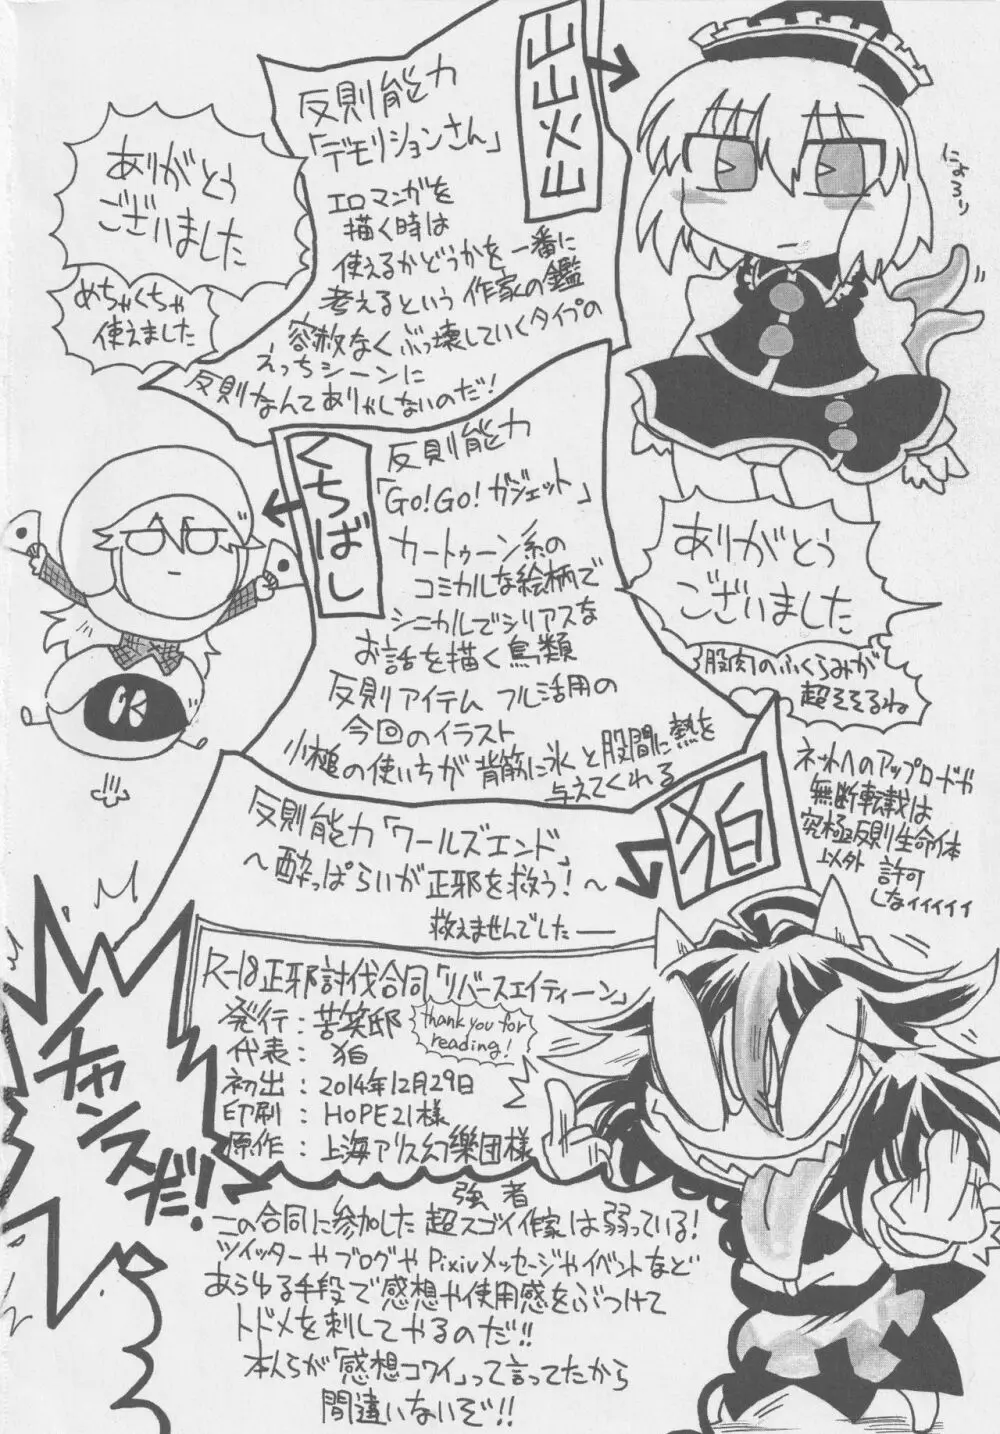 山山火山
反則能力
「デモリションさん」
エロマンガを
描く時は
使えるかどうかを一番に
考えるという作家の鑑
容赦なくぶっ壊していくタイプの
えっちシーンに
反則なんてありゃしないのだ!
ありがとう
ございました
めちゃくちゃ
使えました
にょろり
くちばし
反則能力
「GO!GO!ガジェット」
カートゥーン系の
コミカルな絵柄で
シニカルでシリアスな
お話を描く鳥類
反則アイテム フル活用の
今回のイラスト
小槌の使いちが背筋に氷と股間に熱を
与えてくれる
ありがとう
ございました
股肉のふくらみが
超そそるね
ネットへのアップロードや
無断転載は
究極反則生命体
以外 許可
しなィィィィィ
狛
反則能力「ワールズエンド」
～酔っぱらいが正邪を救う!～
救えませんでした――
R-18正邪討伐合同「リバースエイティーン」
発行:苦笑邸
代表:狛
初出:2014年12月29日
印刷:HOPE21様
原作:上海アリス幻樂団様
thank you for
reading!
チャンスだ!
強者
この合同に参加した超スゴイ作家は弱っている!
ツイッターやブログやPixivメッセージやイベントなど
あらゆる手段で感想や使用感をぶつけて
トドメを刺してやるのだ!!
本人らが「感想コワイ」って言ってたから
間違いないぞ!!